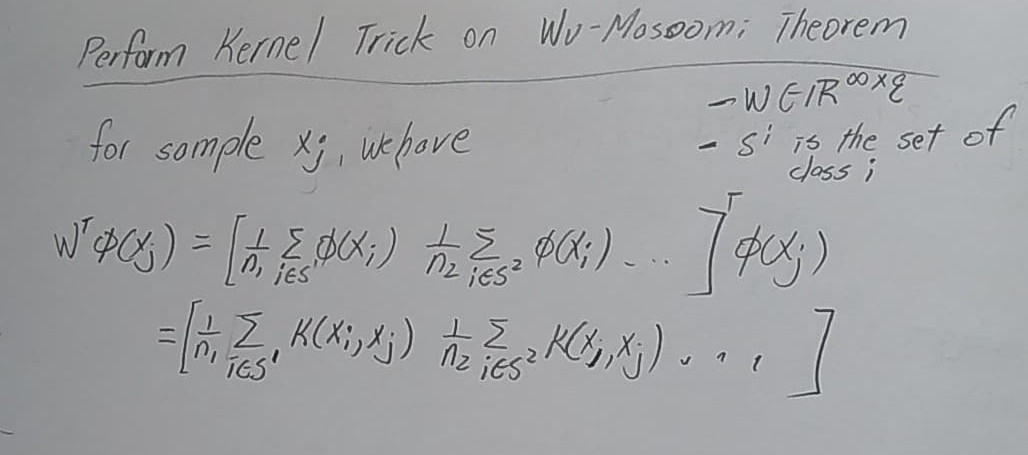 Perform Kernel Trick on Wu-Masoomi Theorem
- W ∈ ℝ^{∞×ξ}
for sample xⱼ, we have
- Sⁱ is the set of class i
Wᵀϕ(xⱼ) = [1/n₁ Σ_{i∈S¹} ϕ(xᵢ) 1/n₂ Σ_{i∈S²} ϕ(xᵢ) ... ]ᵀ ϕ(xⱼ)
= [1/n₁ Σ_{i∈S¹} K(xᵢ, xⱼ) 1/n₂ Σ_{i∈S²} K(xᵢ, xⱼ) . . . , ]